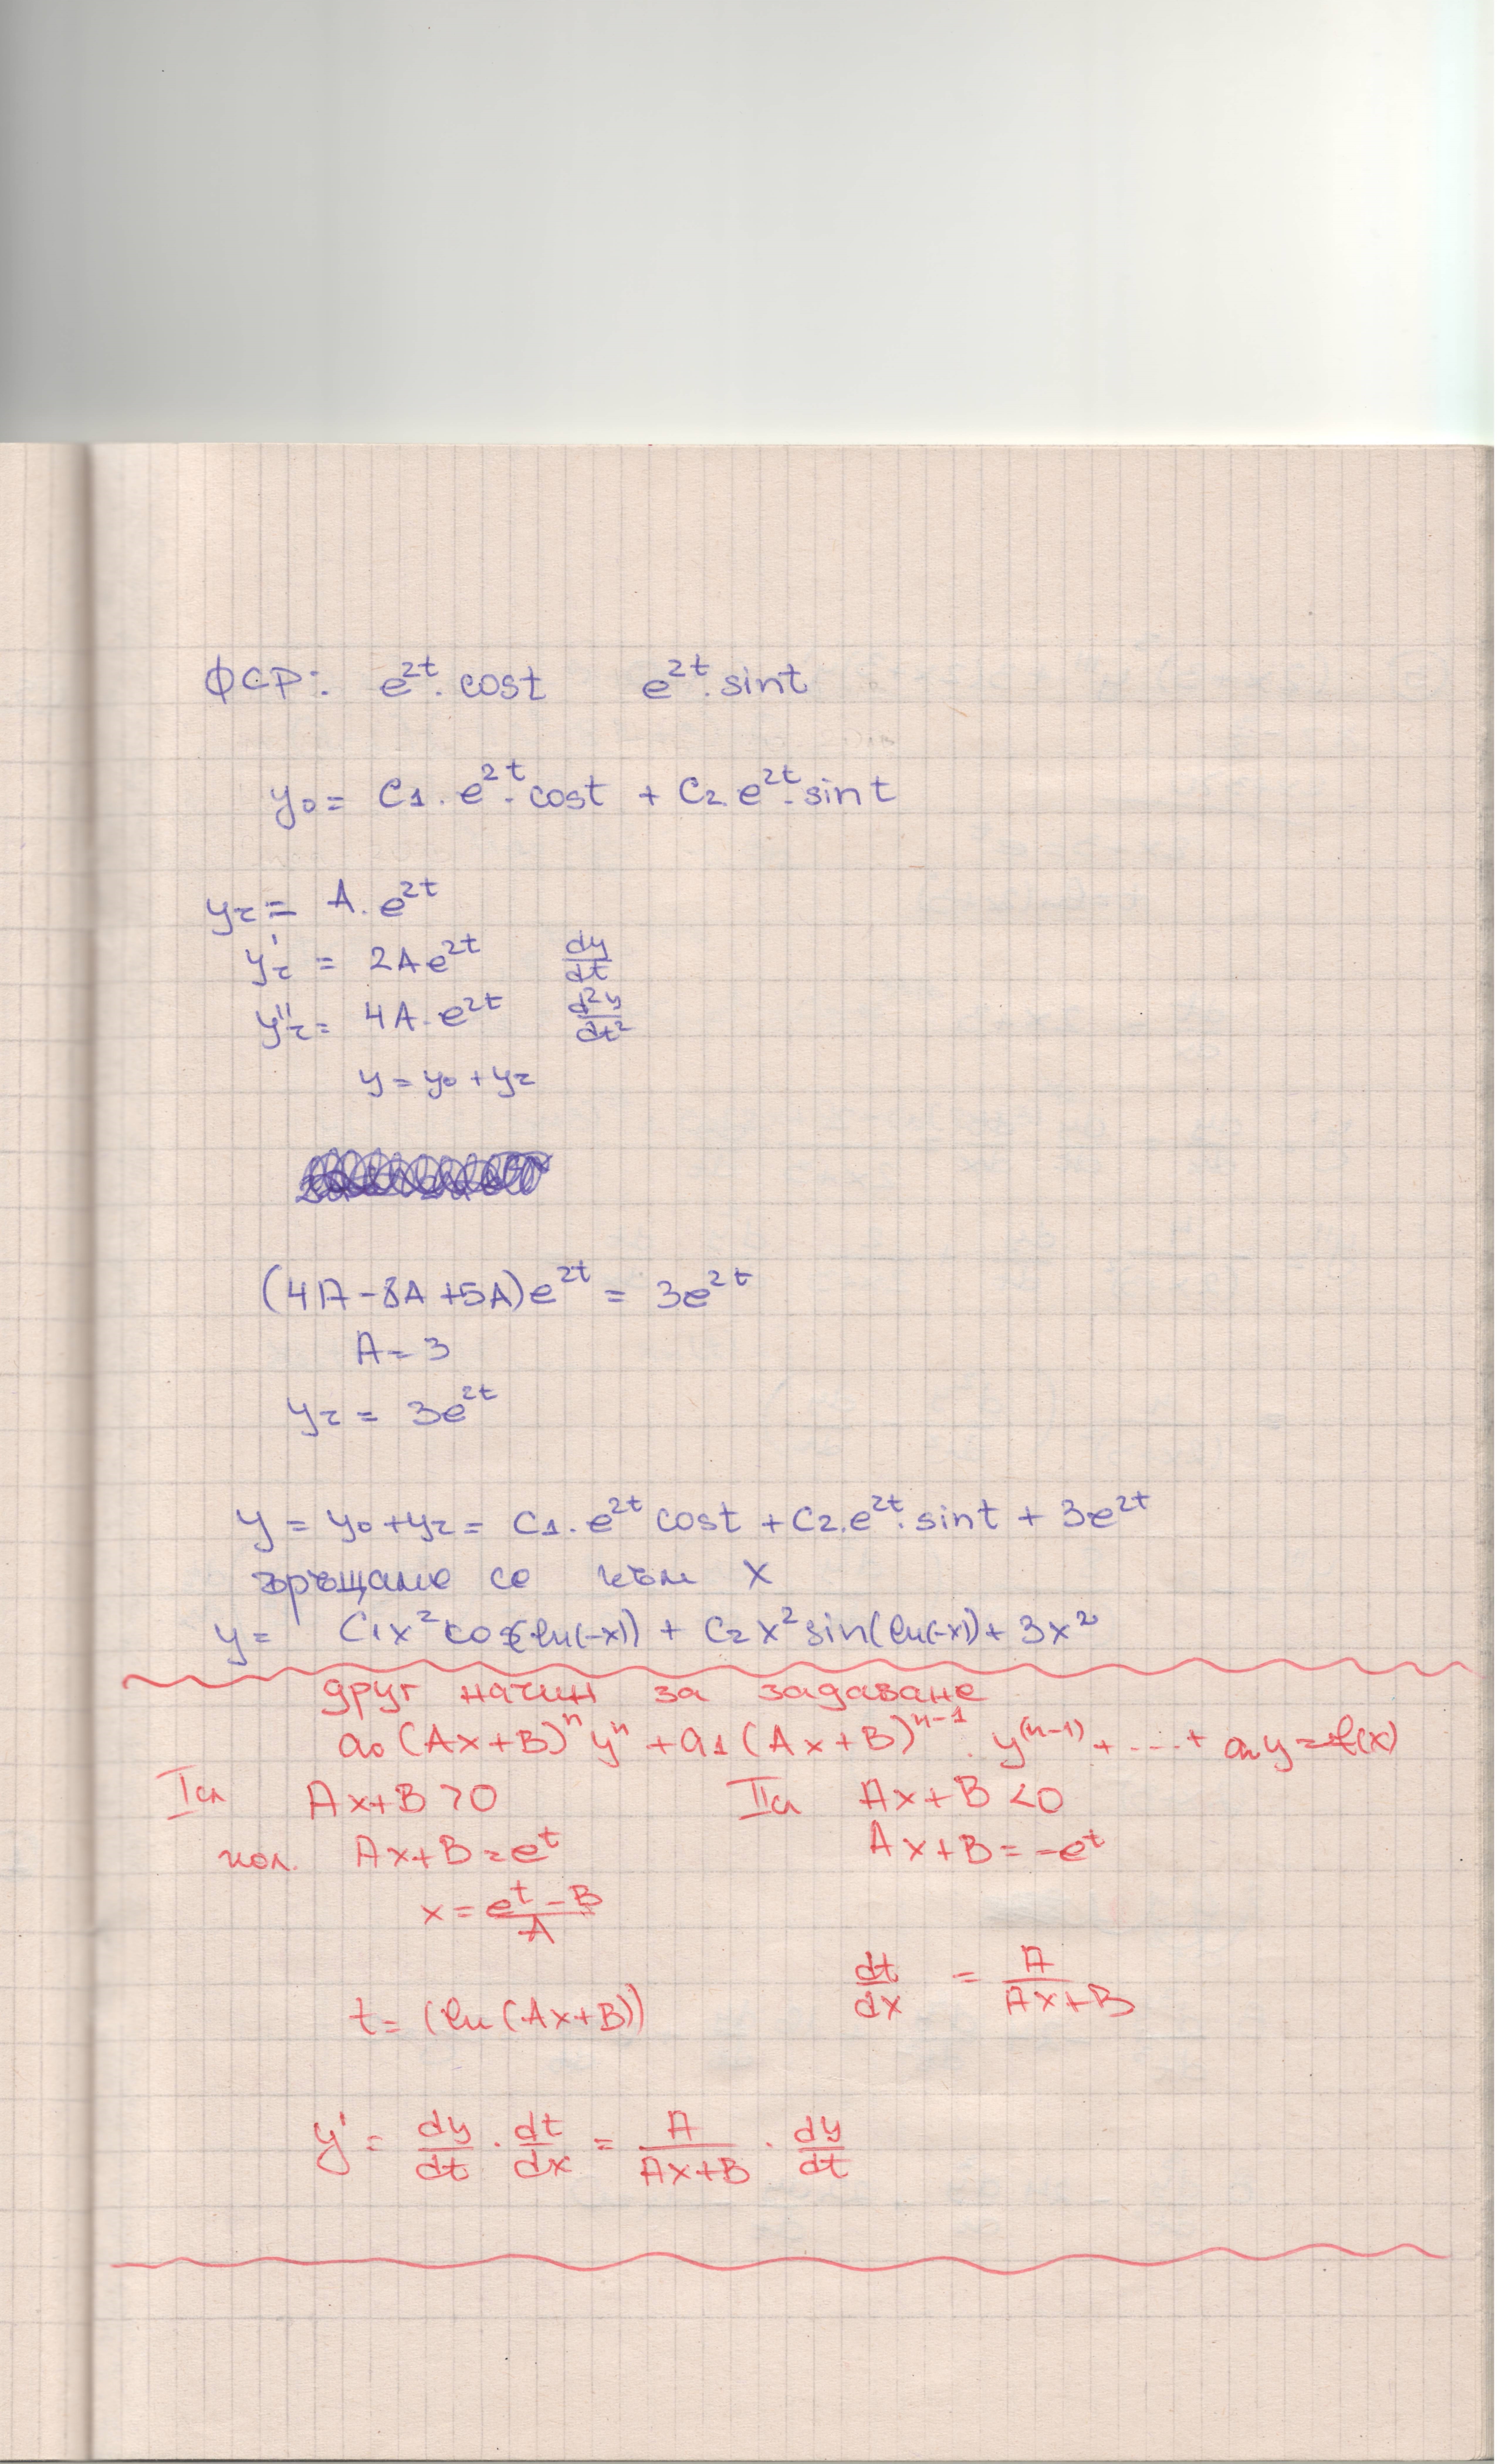 ФСР: e^2t . cost e^2t . sint
y₀ = C1 . e^2t . cost + C2 . e^2t . sint
yz = A . e^2t
y'z = 2Ae^2t dy/dt
y''z = 4A . e^2t d²y/dt²
y = y₀ + yz
(4A - 8A + 5A)e^2t = 3e^2t
A = 3
yz = 3e^2t
y = y₀ + yz = C1 . e^2t cost + C2 . e^2t . sint + 3e^2t
връщаме се към x
y = C1x² cos(ln(-x)) + C2x² sin(ln(-x)) + 3x²
друг начин за задаване
a₀(Ax+B)^n y^n + a1(Ax+B)^n-1 . y^(n-1) + ....+ any = f(x)
I сл Ax+B > 0 II сл Ax+B < 0
пол. Ax+B = e^t Ax+B = -e^t
x = e^t - B / A
dt/dx = A/Ax+B
t = (ln(Ax+B))
y' = dy/dt . dt/dx = A/Ax+B . dy/dt